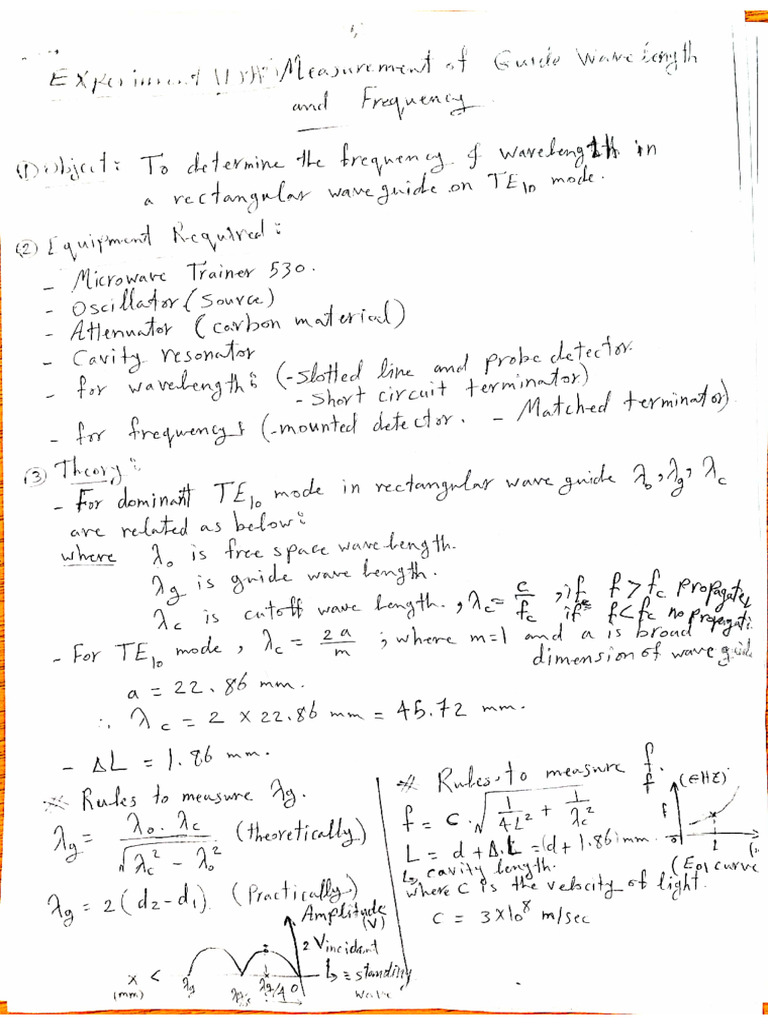 Experiment Measurement of Guide Wave Length
and Frequency
(1) Object: To determine the frequency & wavelength in
a rectangular wave guide on TE10 mode.
(2) Equipment Required:
- Microwave Trainer 530.
- Oscillator (Source)
- Attenuator (carbon material)
- Cavity resonator
- for wavelength: (-slotted line and probe detector.
- short circuit terminator)
- for frequency: (-mounted detector. - Matched terminator)
(3) Theory:
- For dominant TE10 mode in rectangular wave guide λo, λg, λc
are related as below:
where λo is free space wave length.
λg is guide wave length.
λc is cutoff wave length. , λc = c/fc , if f > fc propagates
if f < fc no propagati
- For TE10 mode, λc = 2a/m ; where m=1 and a is broad
dimension of wave guide
a = 22.86 mm.
∴ λc = 2 × 22.86 mm = 45.72 mm.
- ΔL = 1.86 mm.
* Rules to measure λg.
λg = λo . λc / √(λc² - λo²) (theoretically)
λg = 2(d2-d1) (Practically)
Amplitude
(V)
2 Vincidant
↳ = standing
wave
x <
(mm)
λg
λg/4
0
* Rules to measure f.
f = c . √(1/4L² + 1/λc²)
L = d + Δ.L = (d + 1.86) mm.
↳ cavity length.
where C is the velocity of light.
C = 3×10⁸ m/sec
f
(EHZ)
f
0
L
(E01 curve